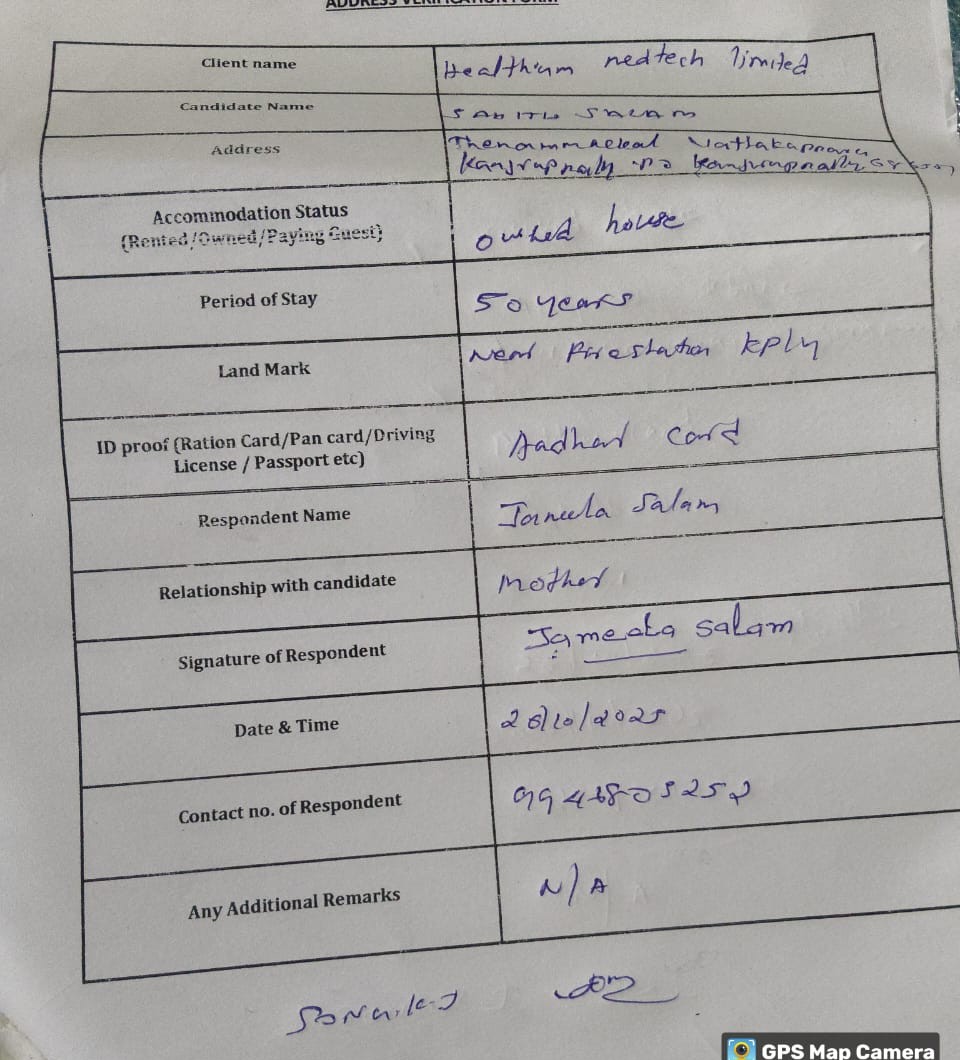 ADDRESS VERIFICATION FORM
Client name Healthium medtech limited
Candidate Name SABITH SALAM
Address Thenammackal Vattakappara
Kanjirapnally po Kanjirapnally
Accommodation Status
(Rented/Owned/Paying Guest) owned house
Period of Stay 50 years
Land Mark Near Firestation kply
ID proof (Ration Card/Pan card/Driving
License / Passport etc) Aadhar card
Respondent Name Jameela Salam
Relationship with candidate mother
Signature of Respondent Jameela salam
Date & Time 26/10/2025
Contact no. of Respondent
Any Additional Remarks N/A
GPS Map Camera